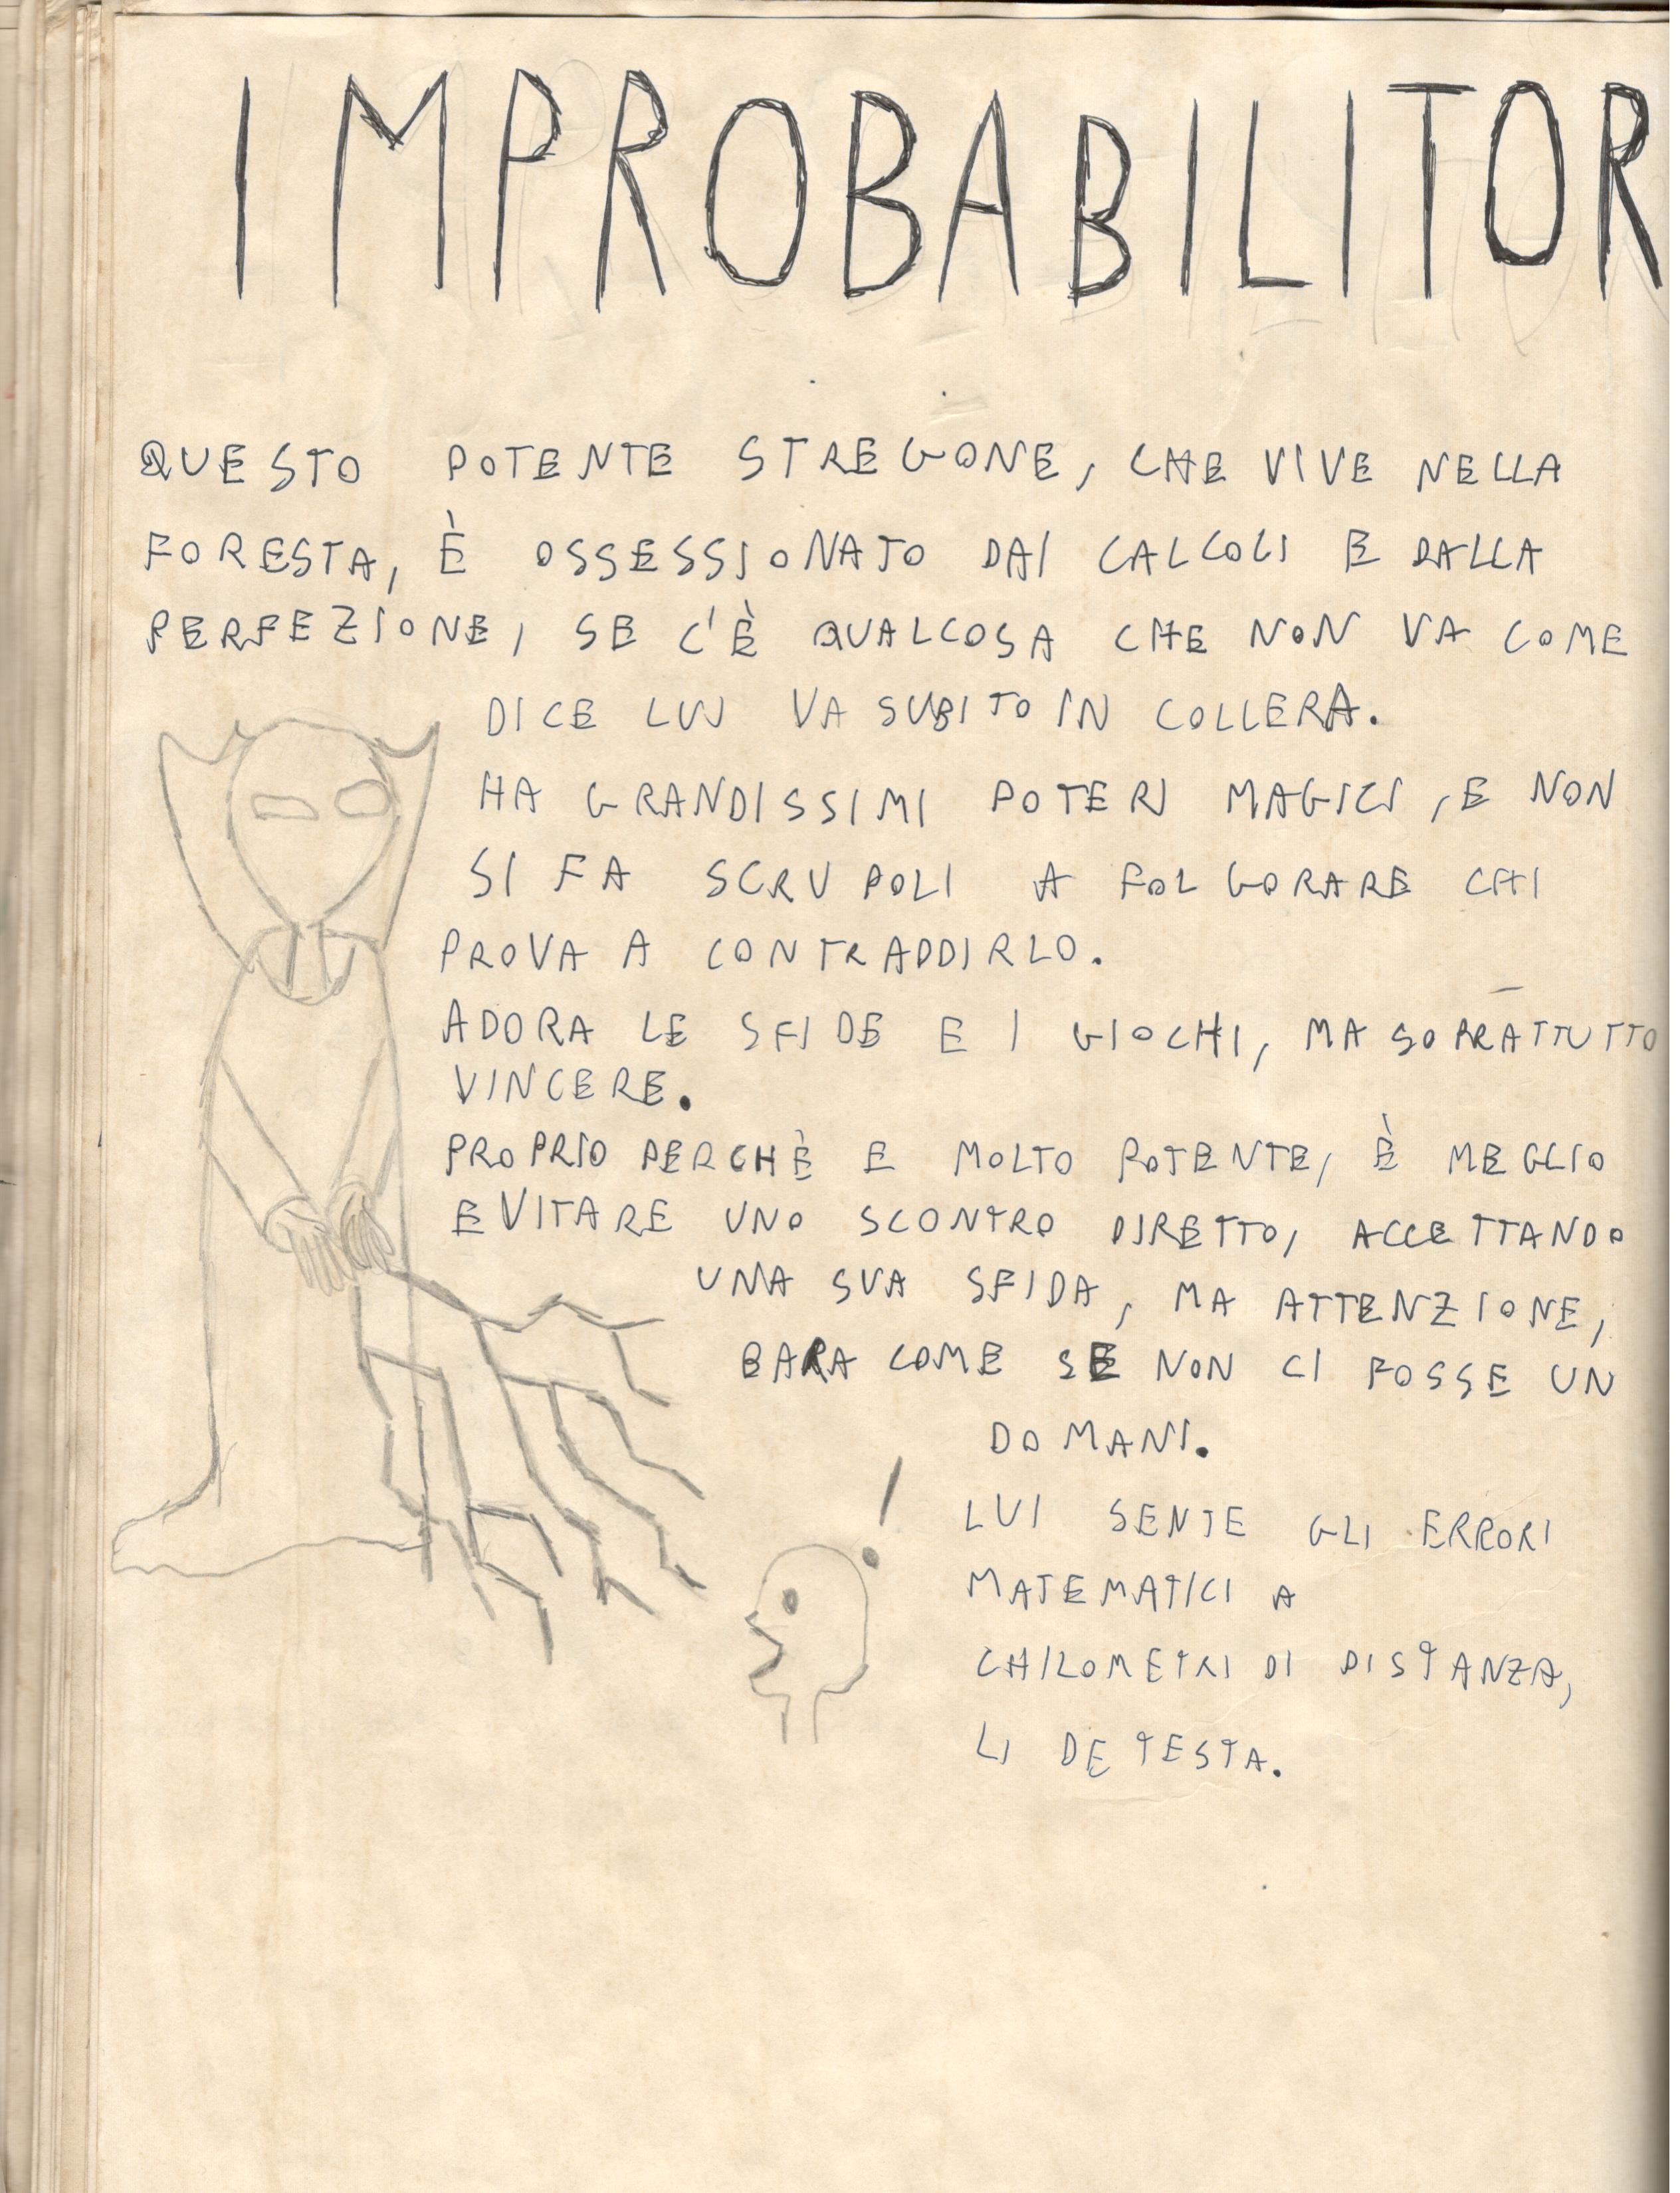 IMPROBABILITOR
QUESTO POTENTE STREGONE, CHE VIVE NELLA
FORESTA, È OSSESSIONATO DAI CALCOLI E DALLA
PERFEZIONE, SE C'È QUALCOSA CHE NON VA COME
DICE LUI VA SUBITO IN COLLERA.
HA GRANDISSIMI POTERI MAGICI, E NON
SI FA SCRUPOLI A FOLGORARE CHI
PROVA A CONTRADDIRLO.
ADORA LE SFIDE E I GIOCHI, MA SOPRATTUTTO
VINCERE.
PROPRIO PERCHÈ E MOLTO POTENTE, È MEGLIO
EVITARE UNO SCONTRO DIRETTO, ACCETTANDO
UNA SUA SFIDA, MA ATTENZIONE,
BARA COME SE NON CI FOSSE UN
DOMANI.
!
LUI SENTE GLI ERRORI
MATEMATICI A
CHILOMETRI DI DISTANZA,
LI DETESTA.